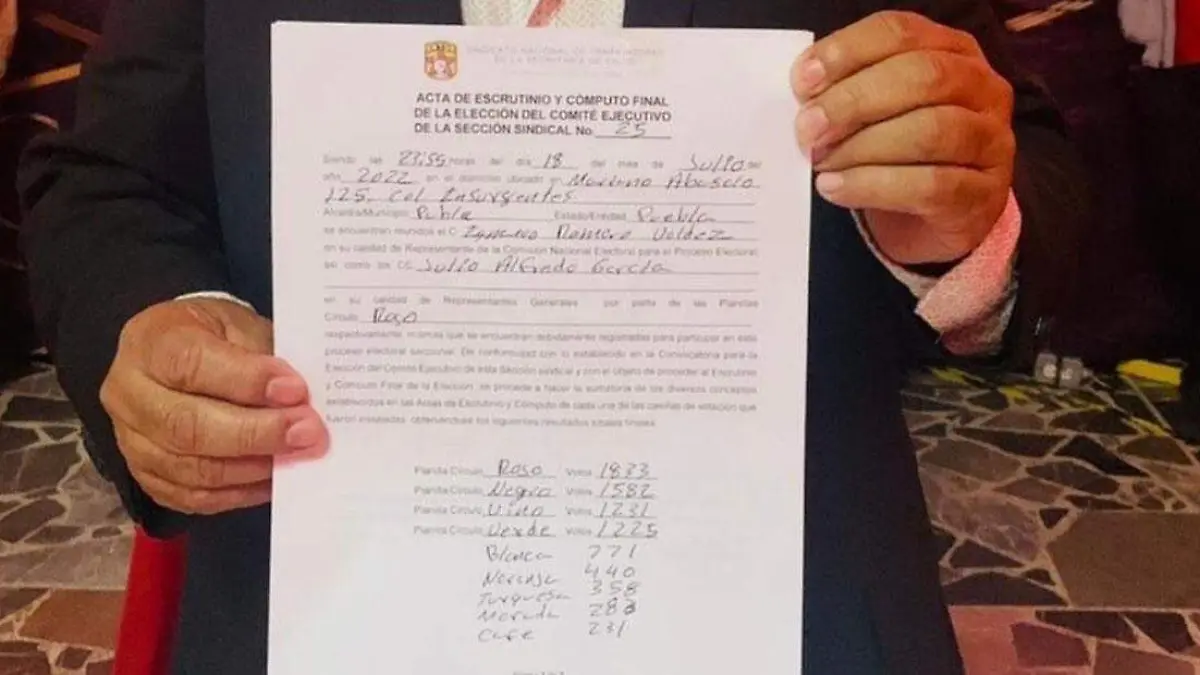 SINDICATO NACIONAL DE TRABAJADORES
DE LA SECRETARÍA DE SALUD
ACTA DE ESCRUTINIO Y CÓMPUTO FINAL
DE LA ELECCIÓN DEL COMITÉ EJECUTIVO
DE LA SECCIÓN SINDICAL No. 25
Siendo las 23:59 horas del día 18 del mes de Julio del
año 2022 en el domicilio ubicado en Mariano Abasolo
125 Col Insurgentes
Alcaldía/Municipio Puebla Estado/Entidad Puebla
se encuentran reunidos el C. Romero Valdez
en su calidad de Representante de la Comisión Nacional Electoral para el Proceso Electoral
así como los CC. Julio Alfredo García
en su calidad de Representantes Generales por parte de las Planillas
Círculo Rosa
respectivamente, mismas que se encuentran debidamente registradas para participar en este
proceso electoral seccional. De conformidad con lo establecido en la Convocatoria para la
Elección del Comité Ejecutivo de esta Sección sindical y con el objeto de proceder al Escrutinio
y Cómputo Final de la Elección, se procede a hacer la sumatoria de los diversos conceptos
establecidos en las Actas de Escrutinio y Cómputo de cada una de las casillas de votación que
fueron instaladas, obteniéndose los siguientes resultados totales finales
Planilla Círculo Rosa Votos 1833
Planilla Círculo Negro Votos 1582
Planilla Círculo Vino Votos 1231
Planilla Círculo Verde Votos 1225
Blanca 771
Naranja 440
Turquesa 358
Morada 283
Cafe 231